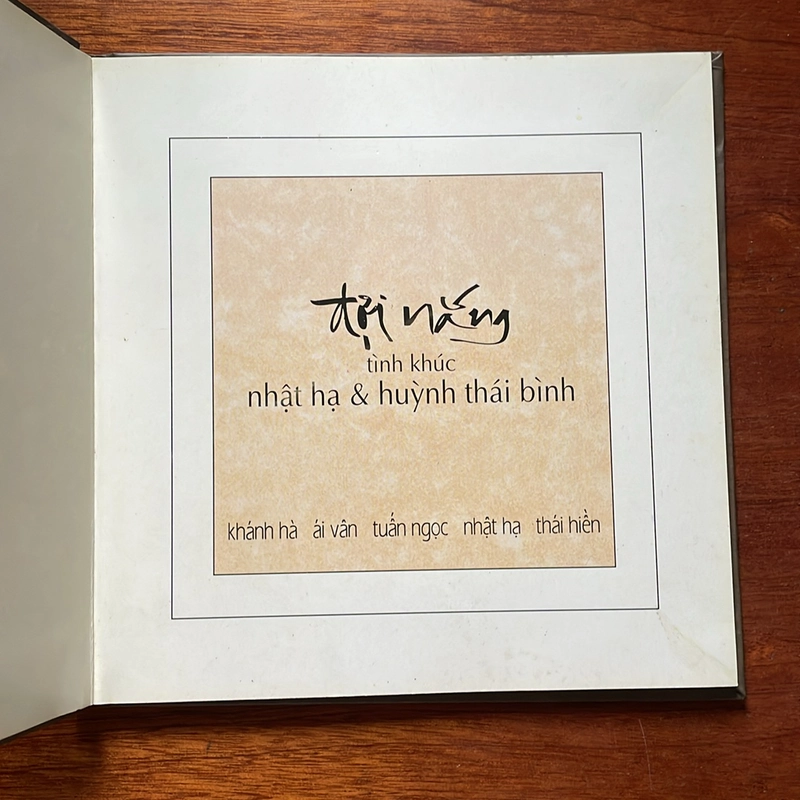 đợi nắng
tình khúc
nhật hạ & huỳnh thái bình
khánh hà ái vân tuấn ngọc nhật hạ thái hiền